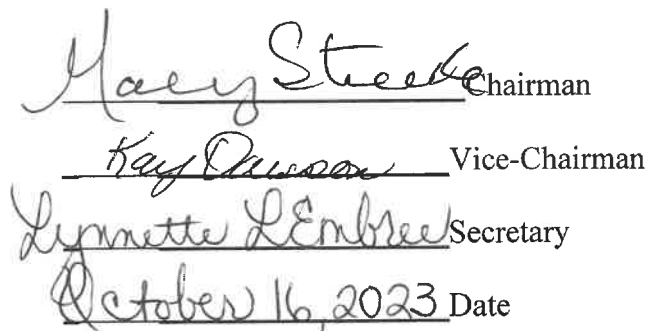 Chairman
Kay Dawson Vice-Chairman
Lynnette L Embree Secretary
October 16, 2023 Date